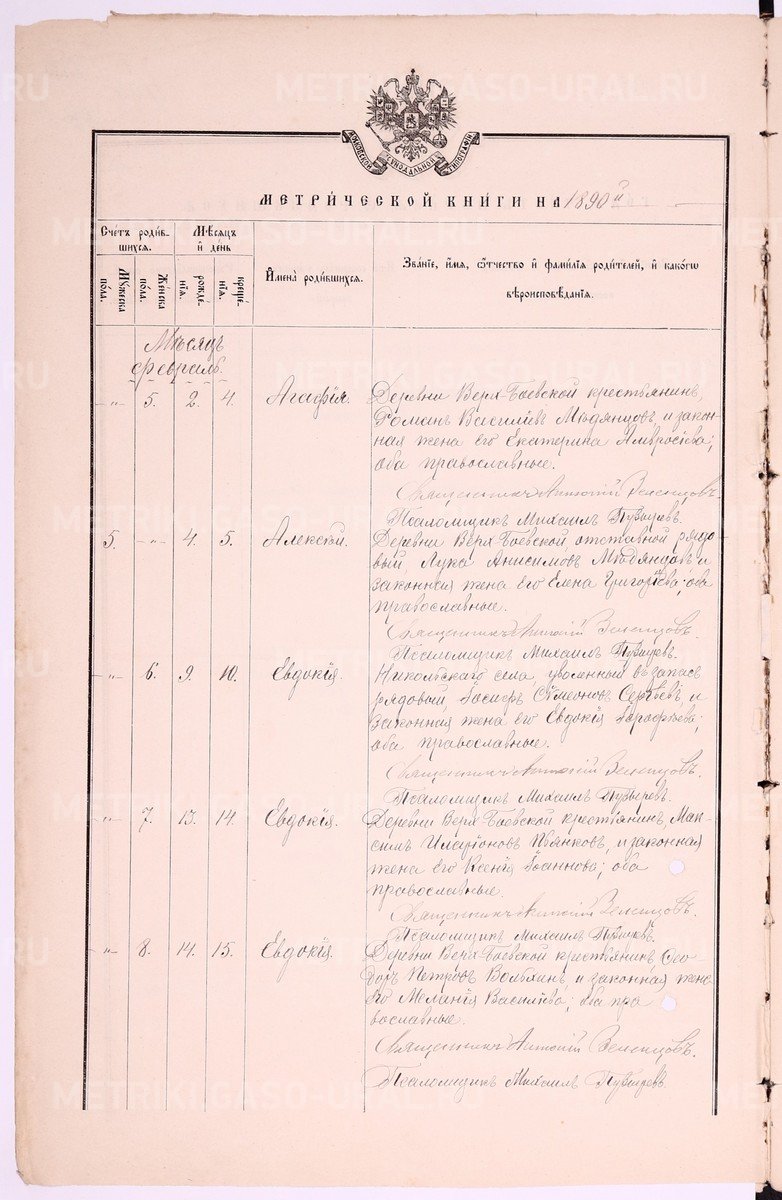 METRIKI.GASO-URAL.RU
МОСКОВСКОЙ СѴНОДАЛЬНОЙ ТИПОГРАФІИ
МЕТРИ́ЧЕСКОЙ КНИ́ГИ НА 1890й
Счетъ роди́в-
шихся.
Мѣсяцъ
и҆ день
Мꙋжеска
пола.
Же́нска
пола.
рожде́-
нїя.
креще́-
нїя.
И҆мена̀ роди́вшихся.
Зва́нїе, и҆мя, ѻ҆́тчество и҆ фами́лїя роди́телей, и҆ како́гѡ
вѣроисповѣ́данїя.
Мѣсяцъ
февраль.
-"- 5. 2. 4. Агафія. Деревни Верх-Боевской крестьянинъ,
Романъ Василіевъ Мѣдянцовъ, и закон-
ная жена его Екатерина Амвросіева;
оба православные.
Священникъ Антоній
Псаломщикъ Михаилъ Пузыревъ.
5. -"- 4. 5. Алексѣй. Деревни Верх-Боевской, отставной рядо-
вый, Лука Анисимовъ Мѣдянцовъ и
законная жена его Елена Григоріева; оба
православные.
Священникъ Антоній
Псаломщикъ Михаилъ Пузыревъ.
-"- 6. 9. 10. Евдокія. Никольскаго села уволенный въ запасъ
рядовый Іосифъ Сѵмеоновъ Сергѣевъ, и
законная жена его Евдокія
оба православные.
Священникъ Антоній
Псаломщикъ Михаилъ Пузыревъ.
-"- 7. 13. 14. Евдокія. Деревни Верх-Боевской крестьянинъ, Мак-
симъ Иларіоновъ Пьянковъ, и законная
жена его Ксенія Іоаннова; оба
православные.
Священникъ Антоній
Псаломщикъ Михаилъ Пузыревъ.
-"- 8. 14. 15. Евдокія. Деревни Верх-Боевской крестьянинъ Ѳео-
доръ Петровъ и законная жена
его Меланія Василіева; оба пра
вославные.
Священникъ Антоній
Псаломщикъ Михаилъ Пузыревъ